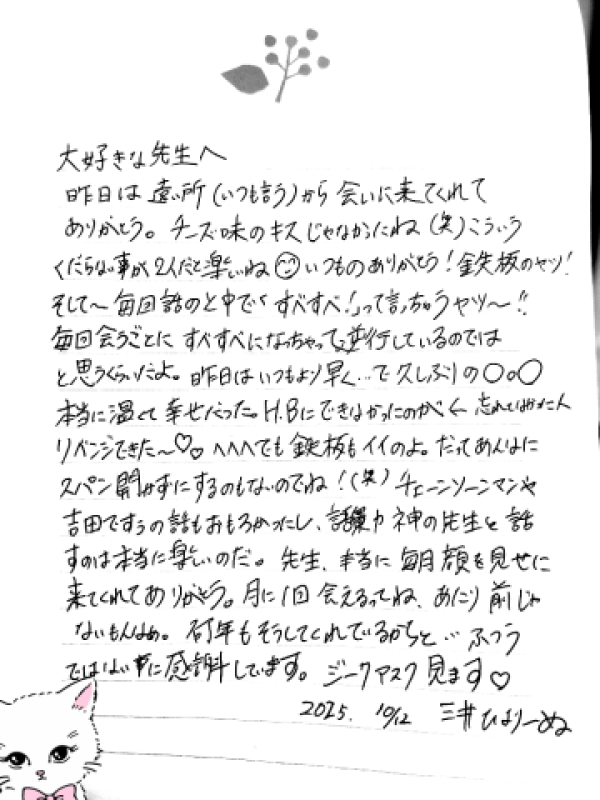 大好きな先生へ
昨日は遠い所(いつも言う)から会いに来てくれて
ありがとう。チーズ味のキスじゃなかったね(笑)こういう
くだらない事が2人だと楽しいね いつものありがとう!鉄板のヤツ!
そして〜毎回話のと中で「すべすべ!」って言っちゃうヤツ〜!!
毎回会うごとにすべすべになっちゃって逆行しているのでは
と思うくらいだよ。昨日はいつもより早く…で久しぶりの〇〇〇
本当に温くて幸せだった。H.Bにできなかったのが
リベンジできた〜♡ へへへでも鉄板もイイのよ。だってあんなに
スパン開かずにするのもないのでね!(笑)チェーンソーマンや
吉田ですぅの話もおもろかったし、話力神の先生と話
すのは本当に楽しいのだ。先生、本当に毎月顔を見せに
来てくれてありがとう。月に1回会えるってね、あたり前じゃ
ないもんなぁ。何年もそうしてくれているからと…ふつう
ではない事に感謝しています。ジークアクス見ます♡
2025. 10/12 三井ひまりーぬ